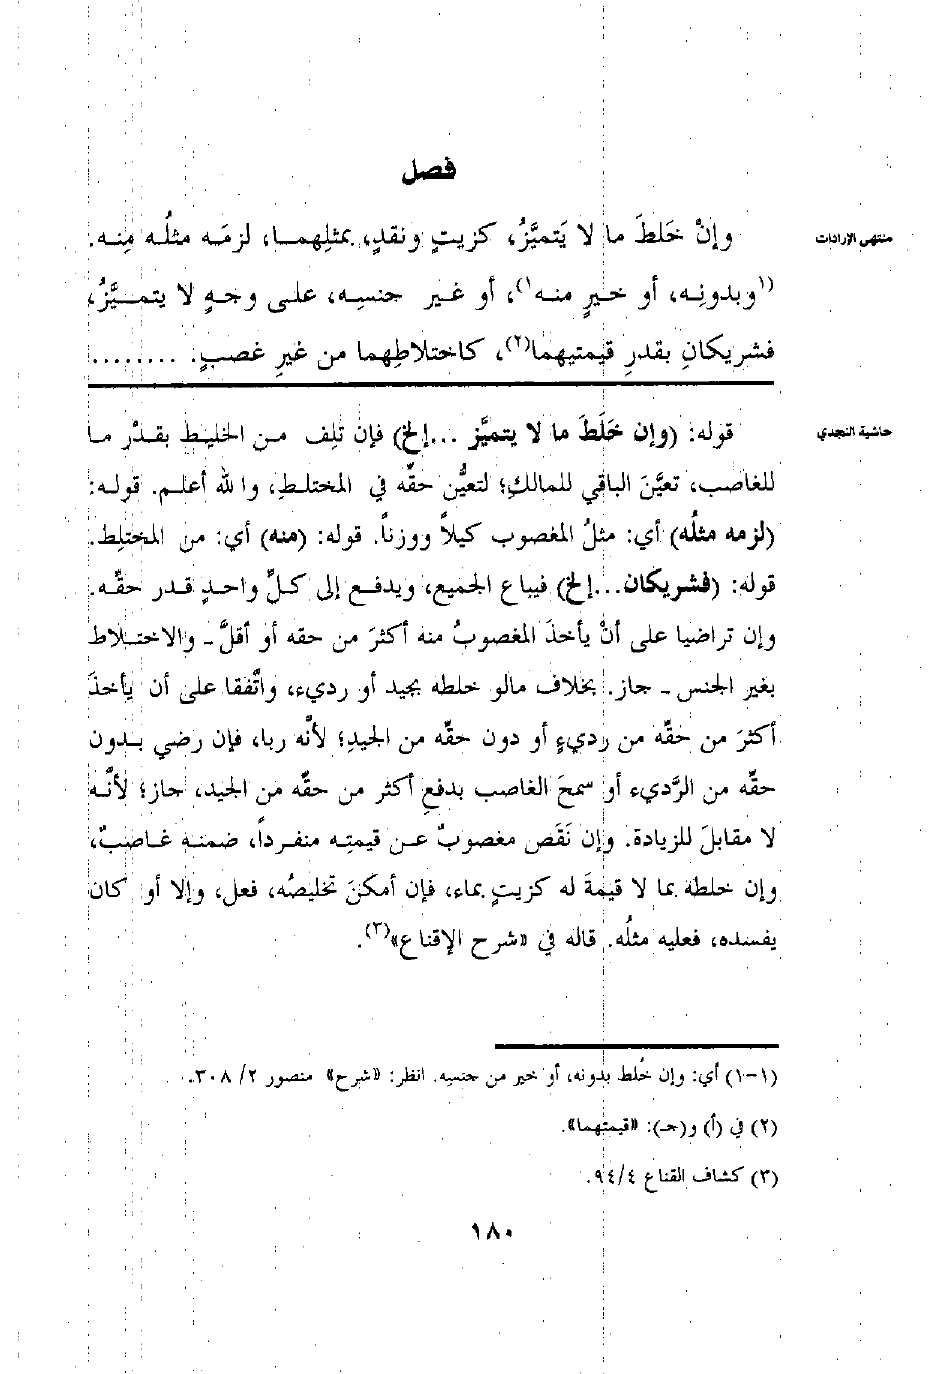 فصل
منتهى الإرادات
وإنْ خَلطَ ما لا يَتميَّزُ، كزيتٍ ونقدٍ، بمثلِهما، لزمَه مثلُه مِنه.
(١وبدونِه، أو خيرٍ منه١)، أو غير جنسِه، على وجهٍ لا يتميَّزُ،
فشريكانِ بقدرِ قيمتيهما(٢)، كاختلاطِهما من غيرِ غصبٍ. ........
حاشية النجدي
قوله: (وإن خَلَطَ ما لا يتميَّز ...إلخ) فإن تلِف من الخليط بقدْر ما
للغاصب، تعيَّنَ الباقي للمالكِ؛ لتعيُّن حقِّه في المختلطِ، والله أعلم. قوله:
(لزمه مثلُه) أي: مثلُ المغصوب كيلاً ووزناً. قوله: (منه) أي: من المختلِط.
قوله: (فشريكان...إلخ) فيباع الجميع، ويدفع إلى كلِّ واحدٍ قدر حقِّه.
وإن تراضيا على أنْ يأخذَ المغصوبُ منه أكثرَ من حقه أو أقلَّ ـ والاختلاط
بغير الجنس ـ جاز. بخلاف مالو خلطه بجيد أو رديء، واتَّفقا على أن يأخذَ
أكثرَ من حقِّه من رديءٍ أو دون حقِّه من الجيدِ؛ لأنَّه ربا، فإن رضي بدون
حقِّه من الرَّديء أو سمحَ الغاصب بدفعِ أكثر من حقِّه من الجيد، جاز؛ لأنَّه
لا مقابلَ للزيادة. وإن نَقَص مغصوبٌ عن قيمتِه منفرداً، ضمنه غاصبٌ،
وإن خلطه بما لا قيمةَ له كزيتٍ بماء، فإن أمكنَ تخليصُه، فعل، وإلا أو كان
يفسده، فعليه مثلُه. قاله في «شرح الإقناع»(٣).
(١-١) أي: وإن خُلط بدونه، أو خير من جنسِه. انظر: «شرح» منصور ٢/ ٣٠٨.
(٢) في (أ) و(جـ): «قيمتهما».
(٣) كشاف القناع ٩٤/٤.
١٨٠